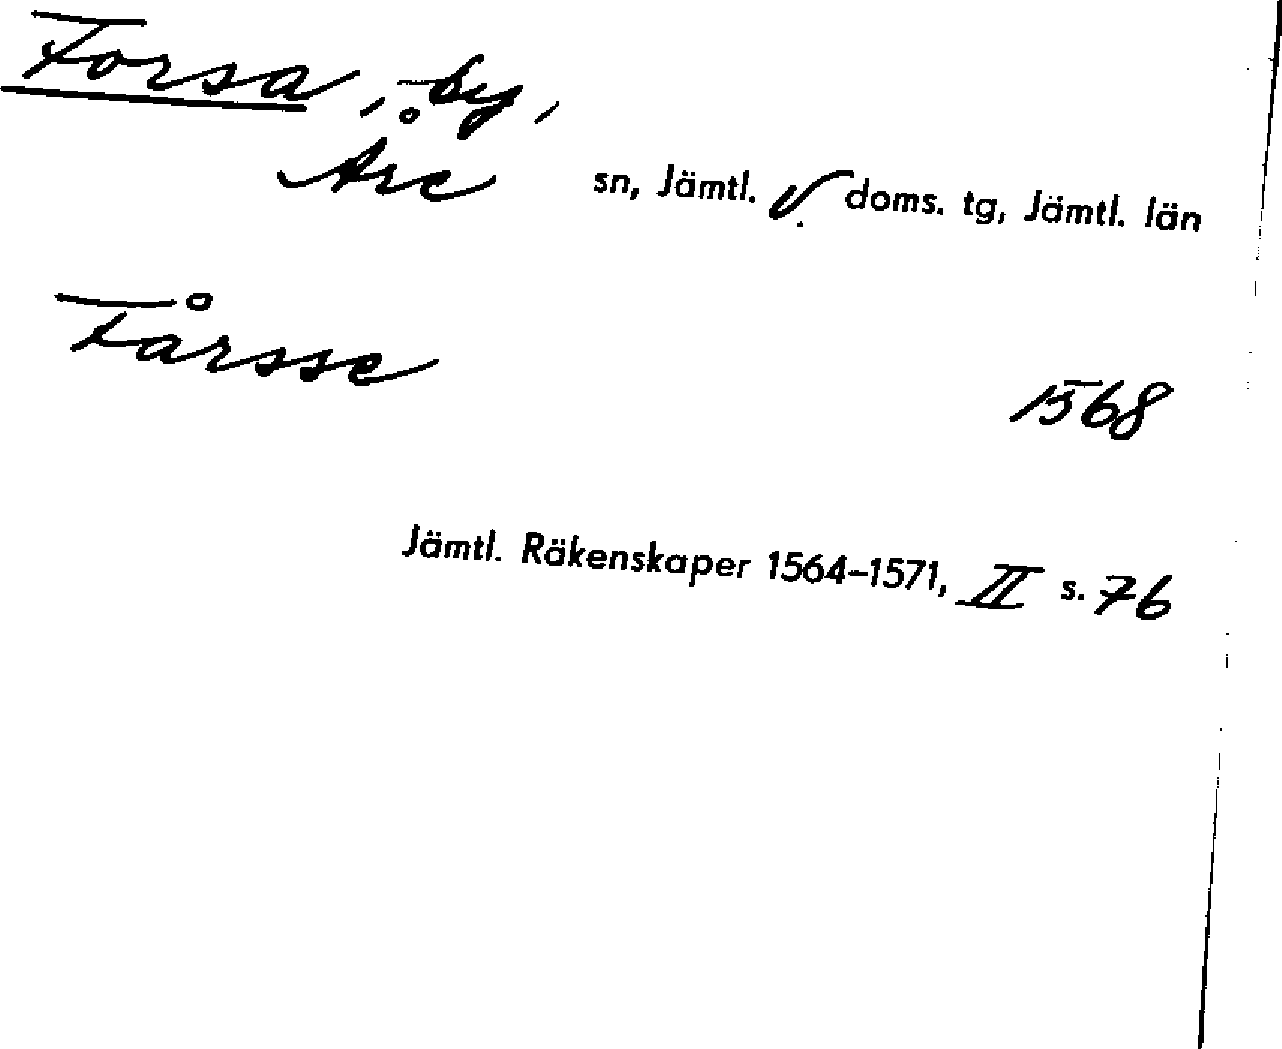 Forsa, by,
Åre sn, Jämtl. v. doms. tg, Jämtl. län
Fårsse
1568
Jämtl. Räkenskaper 1564-1571, II s. 76